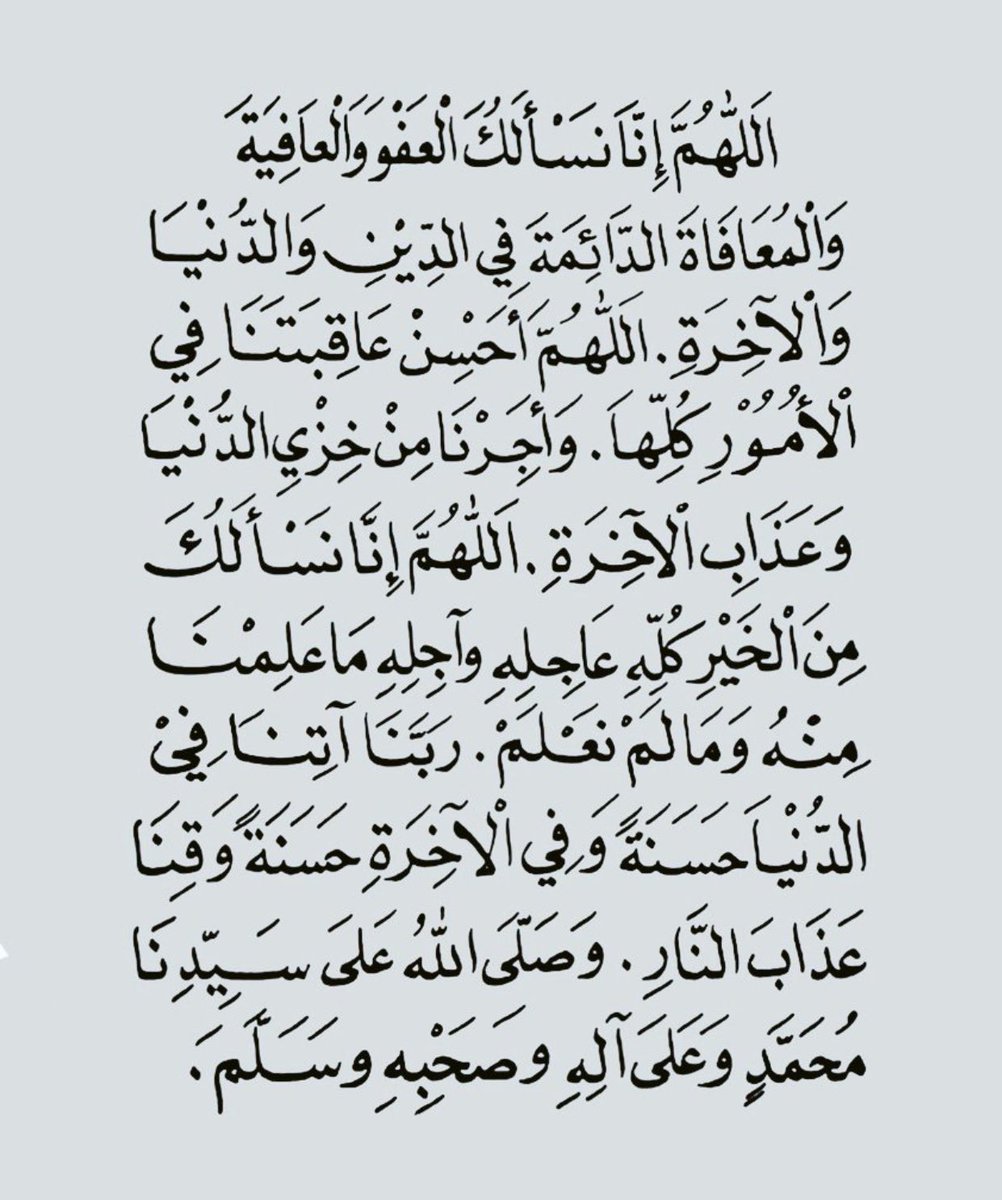 اَللّٰهُمَّ إِنَّا نَسْأَلُكَ الْعَفْوَ وَالْعَافِيَةَ
وَالْمُعَافَاةَ الدَّائِمَةَ فِي الدِّيْنِ وَالدُّنْيَا
وَالْآخِرَةِ. اَللّٰهُمَّ أَحْسِنْ عَاقِبَتَنَا فِي
الْأُمُوْرِ كُلِّهَا. وَأَجِرْنَا مِنْ خِزْيِ الدُّنْيَا
وَعَذَابِ الْآخِرَةِ. اَللّٰهُمَّ إِنَّا نَسْأَلُكَ
مِنَ الْخَيْرِ كُلِّهِ عَاجِلِهِ وآجِلِهِ مَا عَلِمْنَا
مِنْهُ وَمَا لَمْ نَعْلَمْ. رَبَّنَا آتِنَا فِيْ
الدُّنْيَا حَسَنَةً وَفِي الْآخِرَةِ حَسَنَةً وَقِنَا
عَذَابَ النَّارِ. وَصَلَّى اللهُ عَلَى سَيِّدِنَا
مُحَمَّدٍ وَعَلَى آلِهِ وَصَحْبِهِ وَسَلَّمَ.